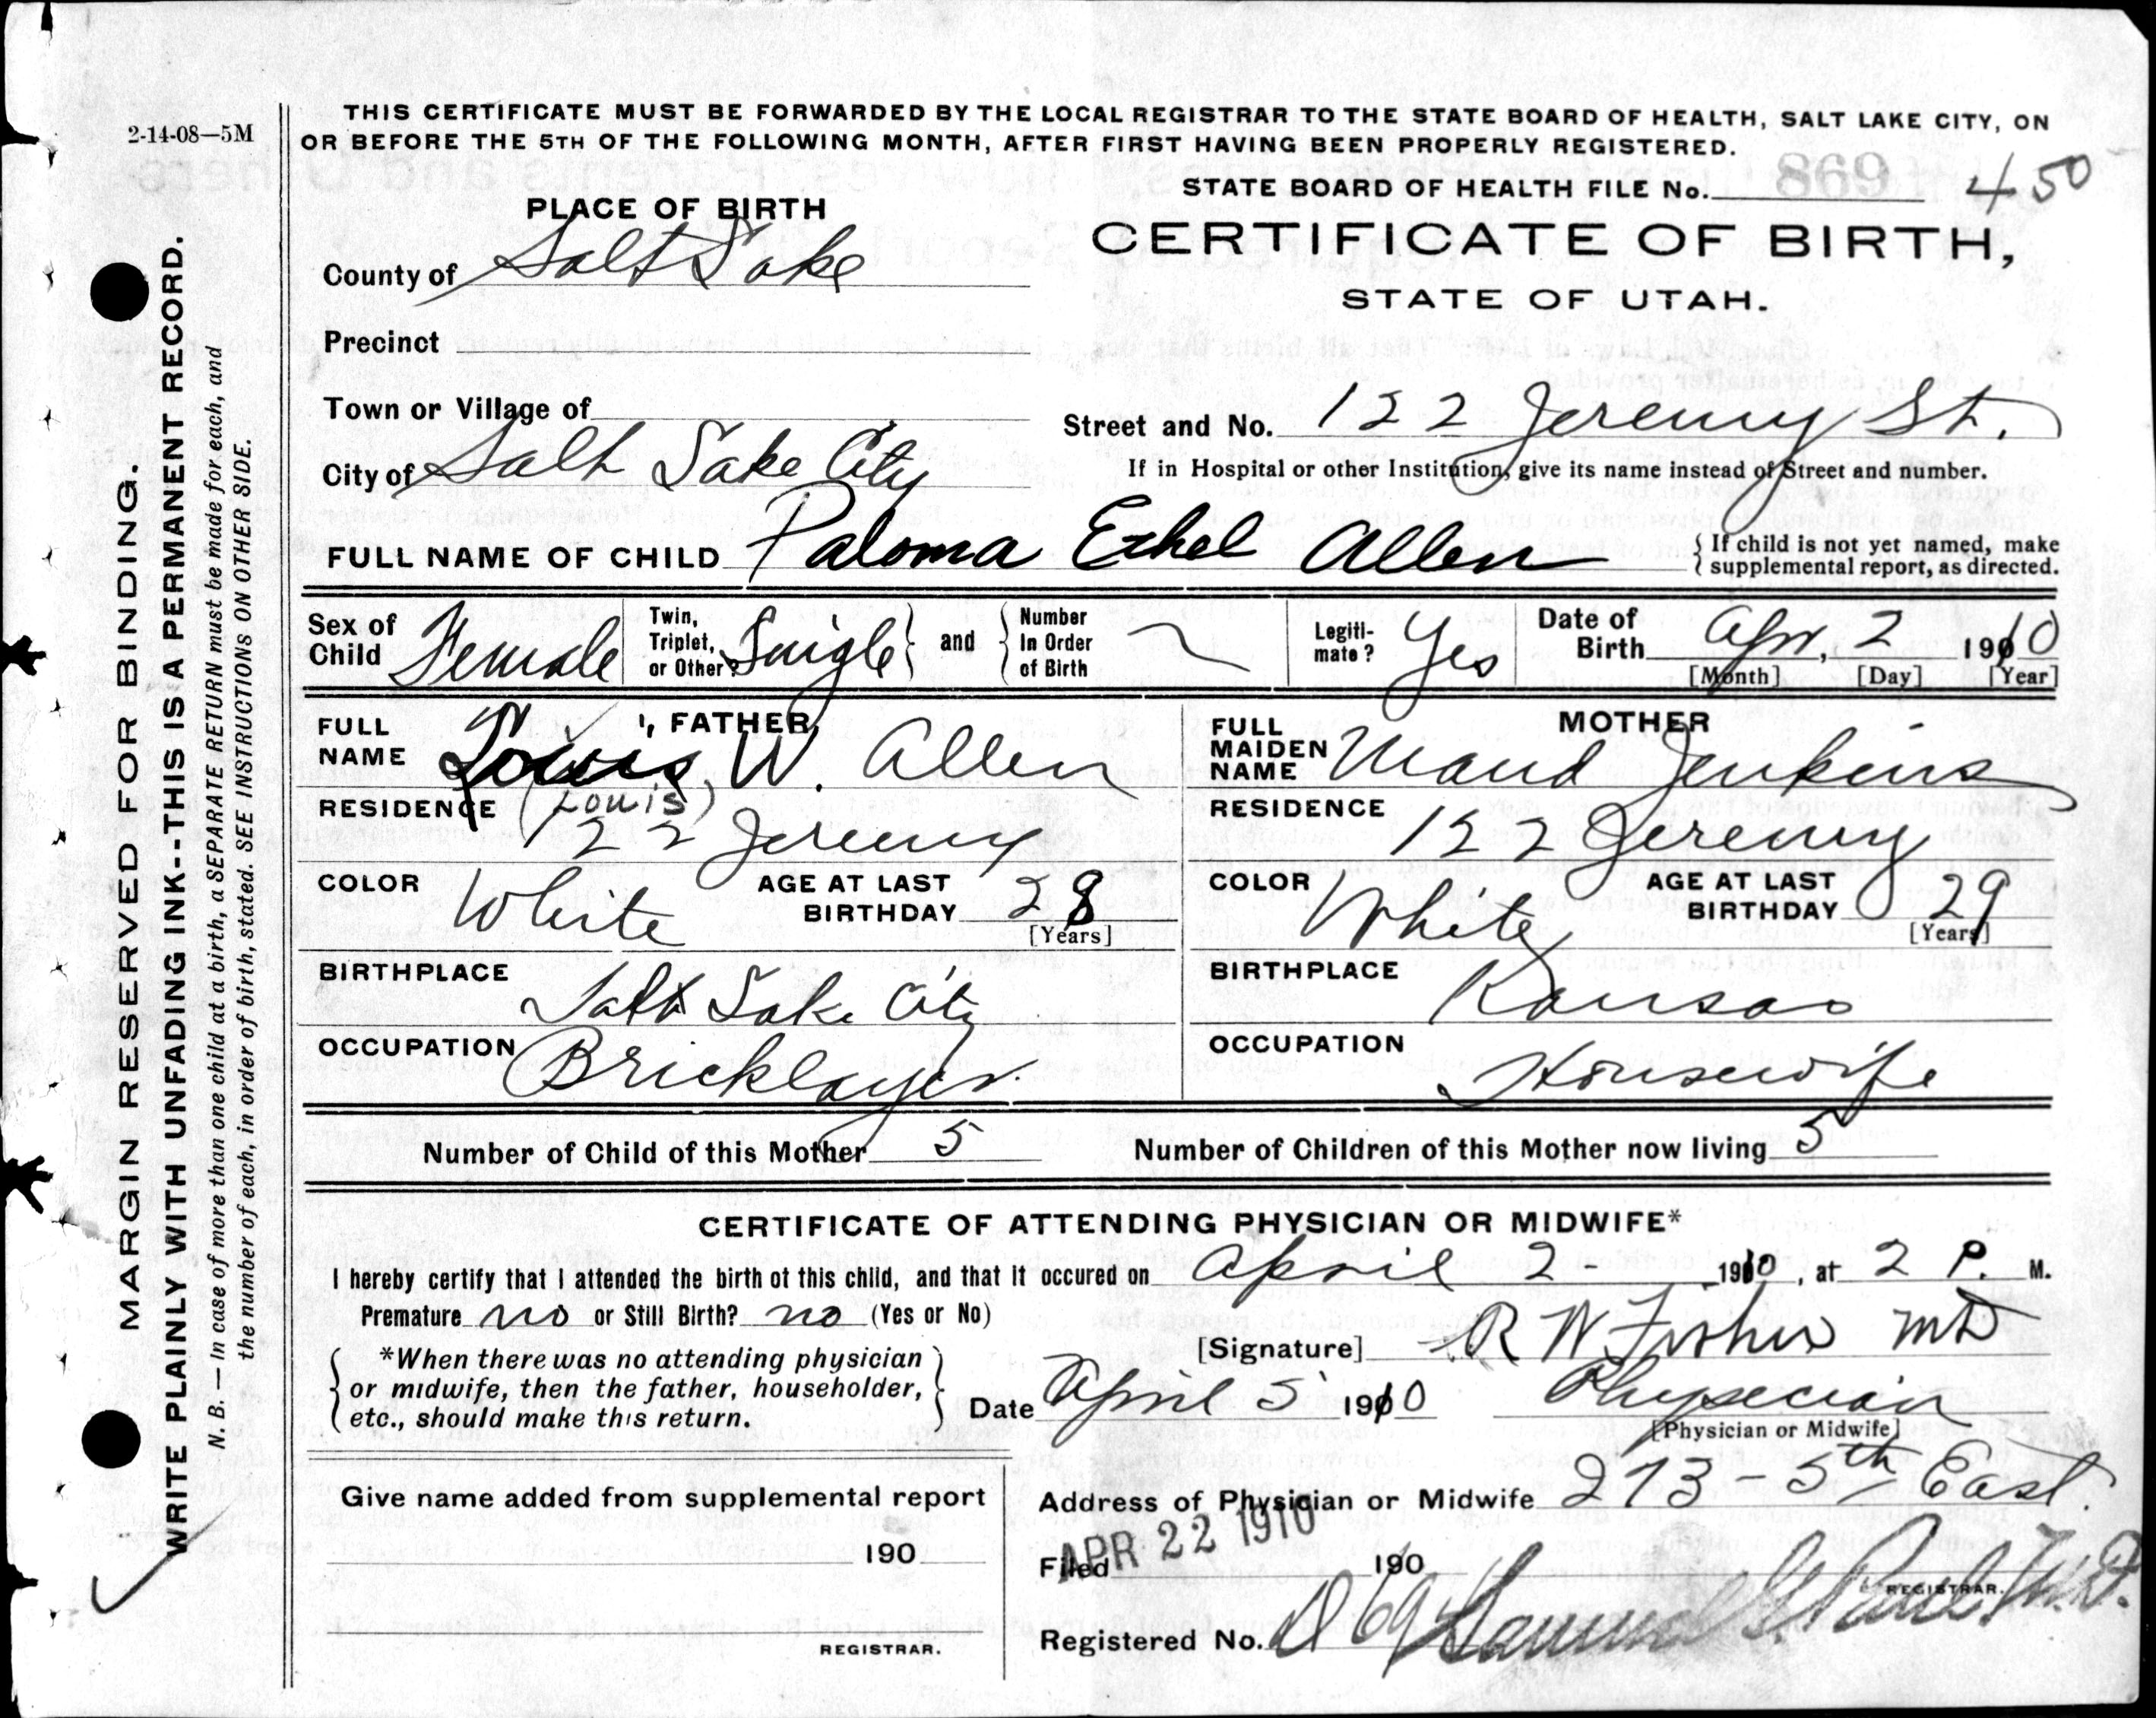 2-14-08—5M
THIS CERTIFICATE MUST BE FORWARDED BY THE LOCAL REGISTRAR TO THE STATE BOARD OF HEALTH, SALT LAKE CITY, ON
OR BEFORE THE 5TH OF THE FOLLOWING MONTH, AFTER FIRST HAVING BEEN PROPERLY REGISTERED.
STATE BOARD OF HEALTH FILE No. 450
PLACE OF BIRTH
CERTIFICATE OF BIRTH,
STATE OF UTAH.
County of Salt Lake
Precinct
Town or Village of
Street and No. 122 Jeremy St.
City of Salt Lake City
If in Hospital or other Institution, give its name instead of Street and number.
FULL NAME OF CHILD Paloma Ethel Allen
{ If child is not yet named, make
supplemental report, as directed.
Sex of Child Female
Twin, Triplet, or Other? Single } and { Number In Order of Birth
Legiti-mate? Yes
Date of Birth Apr, 2 1910
[Month] [Day] [Year]
FATHER
FULL NAME Louis W. Allen
(Louis)
RESIDENCE 122 Jeremy
COLOR White AGE AT LAST BIRTHDAY 28
[Years]
BIRTHPLACE Salt Lake City
OCCUPATION Bricklayer
MOTHER
FULL MAIDEN NAME Maud Jenkins
RESIDENCE 122 Jeremy
COLOR White AGE AT LAST BIRTHDAY 29
[Years]
BIRTHPLACE Kansas
OCCUPATION Housewife
Number of Child of this Mother 5 Number of Children of this Mother now living 5
CERTIFICATE OF ATTENDING PHYSICIAN OR MIDWIFE*
I hereby certify that I attended the birth of this child, and that it occured on April 2 - 1910, at 2 P. M.
Premature no or Still Birth? no (Yes or No)
[Signature] R W Fisher MD
{ *When there was no attending physician
or midwife, then the father, householder,
etc., should make this return. }
Date April 5 1910 Physician
[Physician or Midwife]
Give name added from supplemental report
190
REGISTRAR.
Address of Physician or Midwife 273 - 5th East.
Filed APR 22 1910 190
REGISTRAR.
Registered No.
MARGIN RESERVED FOR BINDING.
WRITE PLAINLY WITH UNFADING INK--THIS IS A PERMANENT RECORD.
N. B. — In case of more than one child at a birth, a SEPARATE RETURN must be made for each, and
the number of each, in order of birth, stated. SEE INSTRUCTIONS ON OTHER SIDE.